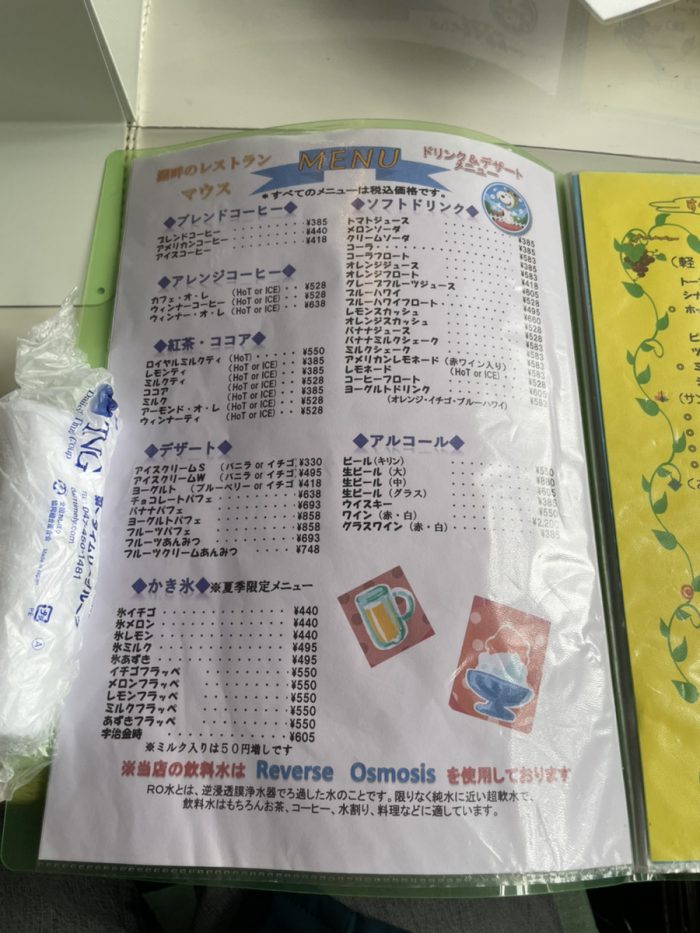 湖畔のレストラン
マウス
MENU
ドリンク&デザート
メニュー
*すべてのメニューは税込価格です。
◆ブレンドコーヒー◆
ブレンドコーヒー ・・・・・・・・ ¥385
アメリカンコーヒー ・・・・・・・・ ¥440
アイスコーヒー ・・・・・・・・ ¥418
◆アレンジコーヒー◆
カフェ・オ・レ (HoT or ICE)・・ ¥528
ウィンナーコーヒー (HoT or ICE)・・ ¥528
ウィンナー・オ・レ (HoT or ICE)・・ ¥638
◆紅茶・ココア◆
ロイヤルミルクティ (HoT)・・・・・ ¥550
レモンティ (HoT or ICE)・・ ¥385
ミルクティ (HoT or ICE)・・ ¥385
ココア (HoT or ICE)・・ ¥528
ミルク (HoT or ICE)・・ ¥385
アーモンド・オ・レ (HoT or ICE)・・ ¥528
ウィンナーティ (HoT or ICE)・・ ¥528
◆デザート◆
アイスクリームS (バニラ or イチゴ) ¥330
アイスクリームW (バニラ or イチゴ) ¥495
ヨーグルト (ブルーベリー or イチゴ) ¥418
チョコレートパフェ ・・・・・・・・ ¥638
バナナパフェ ・・・・・・・・ ¥693
ヨーグルトパフェ ・・・・・・・・ ¥858
フルーツパフェ ・・・・・・・・ ¥858
フルーツあんみつ ・・・・・・・・ ¥693
フルーツクリームあんみつ ・・・・・ ¥748
◆かき氷◆※夏季限定メニュー
氷イチゴ ・・・・・・・・ ¥440
氷メロン ・・・・・・・・ ¥440
氷レモン ・・・・・・・・ ¥440
氷ミルク ・・・・・・・・ ¥495
氷あずき ・・・・・・・・ ¥495
イチゴフラッペ ・・・・・・・・ ¥550
メロンフラッペ ・・・・・・・・ ¥550
レモンフラッペ ・・・・・・・・ ¥550
ミルクフラッペ ・・・・・・・・ ¥550
あずきフラッペ ・・・・・・・・ ¥550
宇治金時 ・・・・・・・・ ¥605
※ミルク入りは50円増しです
◆ソフトドリンク◆
トマトジュース ¥385
メロンソーダ ¥385
クリームソーダ ¥583
コーラ ¥385
コーラフロート ¥583
オレンジジュース ¥385
オレンジフロート ¥583
グレープフルーツジュース ¥418
ブルーハワイ ¥605
ブルーハワイフロート ¥528
レモンスカッシュ ¥495
オレンジスカッシュ ¥660
バナナジュース ¥528
バナナミルクシェーク ¥528
ミルクシェーク ¥583
アメリカンレモネード (赤ワイン入り) ¥583
レモネード (HoT or ICE) ¥583
コーヒーフロート ¥528
ヨーグルトドリンク ¥605
(オレンジ・イチゴ・ブルーハワイ) ¥583
◆アルコール◆
ビール(キリン) ¥550
生ビール (大) ¥880
生ビール (中) ¥605
生ビール (グラス) ¥385
ウイスキー ¥550
ワイン (赤・白) ¥2,200
グラスワイン (赤・白) ¥385
※当店の飲料水は Reverse Osmosis を使用しております
RO水とは、逆浸透膜浄水器でろ過した水のことです。限りなく純水に近い超軟水で、
飲料水はもちろんお茶、コーヒー、水割り、料理などに適しています。
(軽
(サン
TEL 047-460-1481